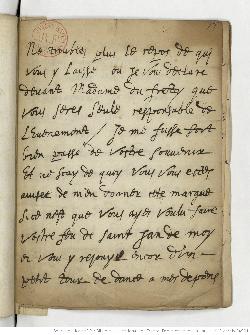 Ne troubles plus le repos de qui
vous y laisse ou je vous declare
devant Madame du fretoy que
vous seres seule responsable de
L'euenement / je me fusse fort
bien passé de vostre souvenir
et ne scay de quoy vous vous estes
auisee de men donner cete marque
si ce nest que vous ayes voulu faire
vostre feu de saint Jan de moy
en vous y resjouyr encor d'un
petit tour de dance a mes despens